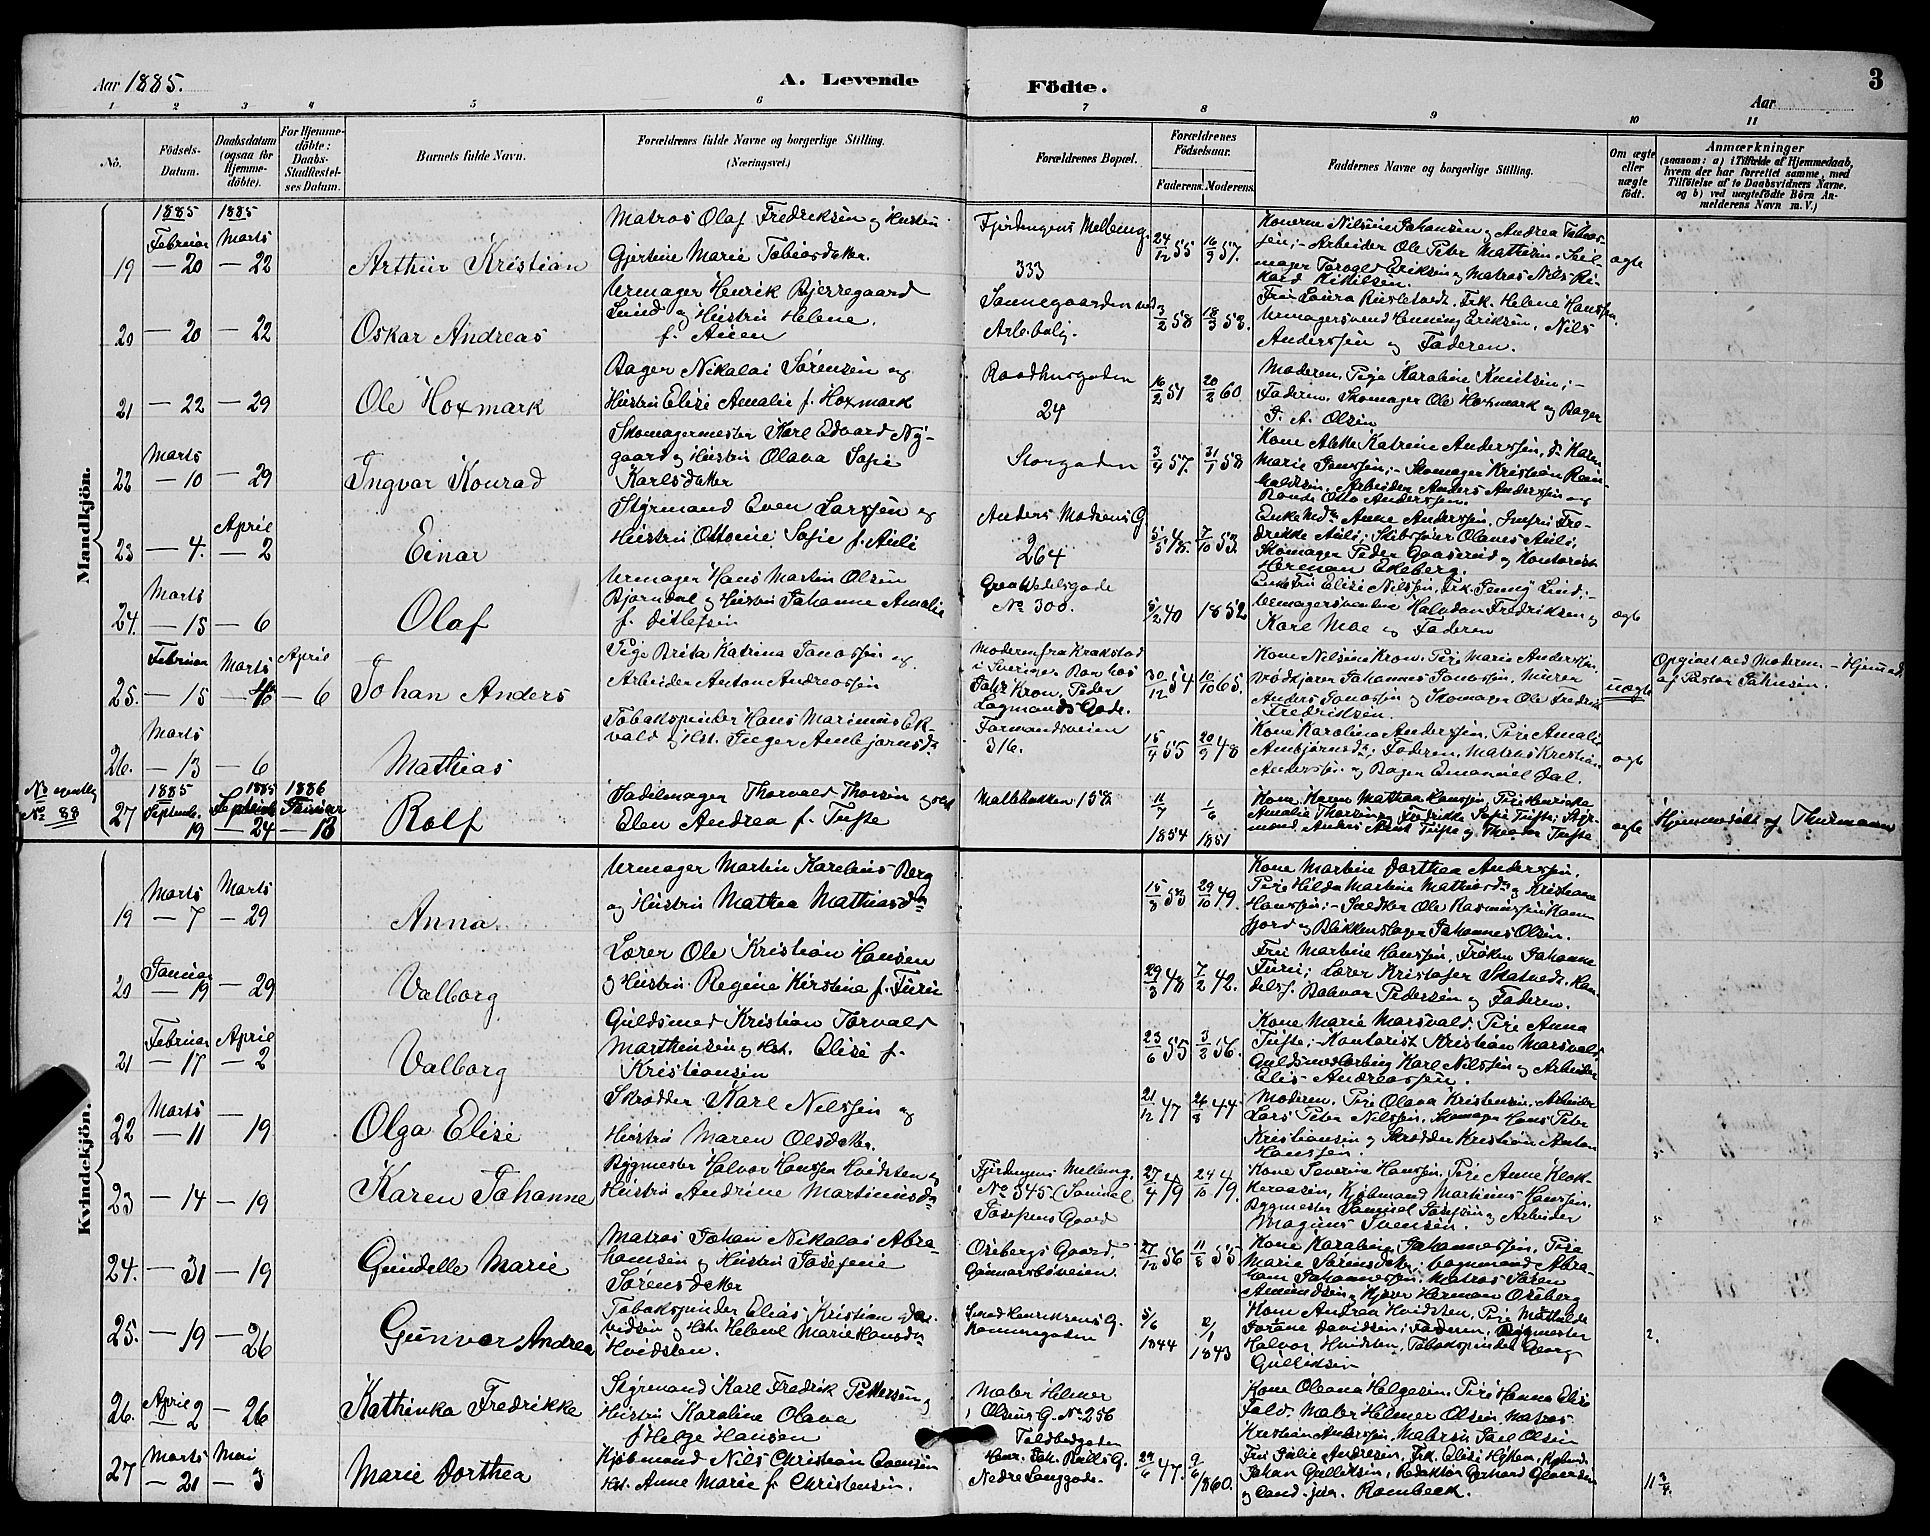 Aar 1885.
A. Levende
Födte.
Aar
3
1 2 3 4 5 6 7 8 9 10 11
No.
Födsels-
Datum.
Daabsdatum
(ogsaa for
Hjemme-
döbte).
For Hjemme-
döbte:
Daabs-
Stadfæstel-
ses Datum.
Barnets fulde Navn.
Forældrenes fulde Navne og borgerlige Stilling.
(Næringsvei.)
Forældrenes Bopæl.
Forældrenes
Födselsaar.
Faderens. Moderens.
Faddernes Navne og borgerlige Stilling.
Om ægte
eller
uægte
födt.
Anmærkninger
(saasom: a) i Tilfælde af Hjemmedaab,
hvem der har forrettet samme, med
Tilföielse af to Daabsvidners Navne,
og b) ved uægtefödte Börn An-
melderens Navn m. V.)
Mandkjön.
1885 1885
Februar Marts
19 — 20 — 22 Arthur Kristian
Matros Olaf Fredriksen og Hustru
Gjertine Marie Tobiasdatter.
Fjerdingens Mellemg.
333
24/12 55 16/9 57.
Konerne Nilsine Johansen og Andrea Tobias-
sen; - Arbeider Ole Peter Mathisen, Seil-
mager Eriksen og Matros Nils
ægte
20 — 20 — 22 Oskar Andreas
Urmager Henrik Bjerregaard
Lund og Hustru Helene
Sannegaarden ved
Arb.bolig.
3/2 58 18/3 53.
Fru Laura Frk. Helene Hanssen.
Urmagersvend Henning Eriksen, Nils
Anderssen og Faderen.
21 — 22 — 29 Ole Hoxmark
Bager Nikolai Sørensen og
Hustru Elise Amalie f. Hoxmark
Raadhusgaden
24
16/2 51 20/2 60
Moderen, Pige Karoline Knutsen; -
Faderen, Skomager Ole Hoxmark og Bager
A. Olsen
Marts
22 — 10 — 29 Ingvar Konrad
Skomagermester Karl Edvard Ny-
gaard og Hustru Olava Sofie
Karlsdatter
Storgaden
3/4 57. 31/1 58
Kone Katrine Anderssen, Karen
Marie Janssen; - Skomager Kristian
Arbeider Anders Anderssen og
Otto Anderssen.
April
23 — 4. — 2 Einar
Styrmand Even Larssen og
Hustru Ottomine Sofie f. Auli
Anders Madsens G.
264
5/5 45. 7/10 53.
Enkemd. Anne Anderssen, Jomfru Fre-
drikke Auli; Skibsfører Olaves Auli,
Skomager Peder Gaaserud og Kontorist
Herman Ekeberg.
Marts
24. — 15 — 6 Olaf
Urmager Hans Martin Olsen
Bjørndal og Hustru Johanne Amalie
f. Ditlefsen
Grev Wedelsgade
No 300.
5/2 40 1852
Enkefru Elise Nilssen, Frk. Jenny Lund; -
Urmagersvendene Halvdan Fredriksen og
Karl Moe og Faderen
ægte
Februar Marts April
25. — 15 — 6 Johan Anders
Pige Brita Katrina Janossen og
Arbeider Anton Andreassen
Moderen fra Krokstad
i Sverige. Bor hos
Johs Kron. Peder
Lagmands Gade.
30/12 54 10/10 65.
Kone Nilsine Kron. Pige Marie Anderssen,
Vedkjører Johannes Janossen, Murer
Anders Janossen og Skomager Ole Fredrik
Fredriksen.
uægte
Opgivet ved Moderen. - Hjemmed.
af Pastor Johnsen.
Marts
26. — 13 — 6 Mathias
Tobakspinder Hans Marinius Ek-
vald og Hst. Inger Ambjørnsdr.
Formandsveien
316.
15/4 55 20/9 48
Kone Karoline Anderssen, Pige Amalie
Ambjørnsdr.; Faderen, Matros Kristian
Anderssen og Bager Emanuel Dal.
ægte
No egentlig
No 88
1885 1885 1886
Septemb. Septemb. Januar
27 19 — 24 — 13 Rolf
Sadelmager Thorvald Thorsen og Hst
Elen Andrea f. Tufte
Møllebakken 158
11/7 1854 1/6 1851
Kone Karen Mathea Hanssen, Pige Henrikke
Amalie Thorsen og Fredrikke Sofie Tufte; Styr-
mand Anders Tufte og Theodor Tufte
ægte
Hjemmedøbt af Thurmann
Kvindekjön.
Marts Marts
19 — 7 — 29 Anna
Urmager Martin Karelius Berg
og Hustru Mathea Mathiasdr
15/8 53 29/10 49.
Kone Martine Dorthea Anderssen.
Pige Hilda Martine Mathiasdr og Kristiane
Hanssen; - Snedker Ole Rasmussen
fjord og Blikkenslager Johannes Olsen.
Januar
20 — 19 — 29 Valborg
Lærer Ole Kristian Hansen
og Hustru Regine Kirstine f. Furu
29/3 48 7/2 42.
Fru Martine Hanssen, Frøken Johanne
Furu; Lærer Kristofer Skatvedt, Han-
delsf. Pedersen og Faderen.
Februar April
21 — 17 — 2 Valborg
Guldsmed Kristian Torvald
Marthinsen og Hst. Elise f.
Kristiansen
23/6 55 3/2 56.
Kone Marie Marsvald, Pige Anna
Tufte; - Kontorist Kristian Marsvald,
Guldsmedlærling Karl Nilssen og Arbeider
Elis Andreassen.
Marts
22 — 11 — 19 Olga Elise
Skrædder Karl Nilssen og
Hustru Maren Olsdatter
21/12 47 26/8 44.
Moderen, Pige Olava Kristensen, Arbeider
Lars Peter Nilssen, Skomager Hans Peter
Kristiansen og Skrædder Kristian Anton
Hanssen.
23 — 14 — 19 Karen Johanne
Bygmester Halvor Hanssen Hvidsten og
Hustru Andrine Martinusdr
Fjerdingens Mellemg.
No 345 (Samuel
Josefsens Gaard
27/4 49 24/10 49.
Kone Severine Hanssen, Pige Anne Klok-
keraasen, Kjøbmand Martinus Hanssen,
Bygmester Samuel Josefsen og Arbeider
Magnus Svensen.
24. — 31 — 19 Gundelle Marie
Matros Johan Nikolai Abra-
hamsen og Hustru Josefine
Sørensdatter
Osebergs Gaard,
Gunnarsbøveien.
27/12 56 11/8 55
Kone Karoline Johannessen, Pige
Marie Sørensdatter; Abra-
ham Johannessen, Matros Søren
Amundsen og Herman Oseberg
25. — 19 — 26 Gunvor Andrea
Tobakspinder Elias Kristian Da-
vidsen og Hst. Helene Marie Hansdr
Hvidsten.
Henriksens G.
5/6 1844 1843
Kone Andrea Hvidsten, Pige Mathilde
Davidsen; Faderen, Bygmester
Halvor Hvidsten, Tobakspinder Georg
Gulliksen
2.
April
26. — 2 — 26 Kathinka Fredrikke
Styrmand Karl Fredrik Pettersen og
Hustru Karoline Olava
f Helge Hansen
Maler Helmer
Olsens G. No 256
Toldbodgaden
Kone Oleana Helgesen, Pige Hanna Elise
Fald. Maler Helmer Olsen, Matros
Kristian Anderssen, Matros Olsen
Marts Mai
27 — 21 — 3 Marie Dorthea
Kjøbmand Nils Christian Evensen
Hst. Anne Marie f. Christensen.
Nedre Langgade.
24/6 47. 9/6 1860.
Fru Julie Andresen, Frk. Elise
Johan Gulliksen, Redaktør Gerhard
og Cand. jur. Rambeck.